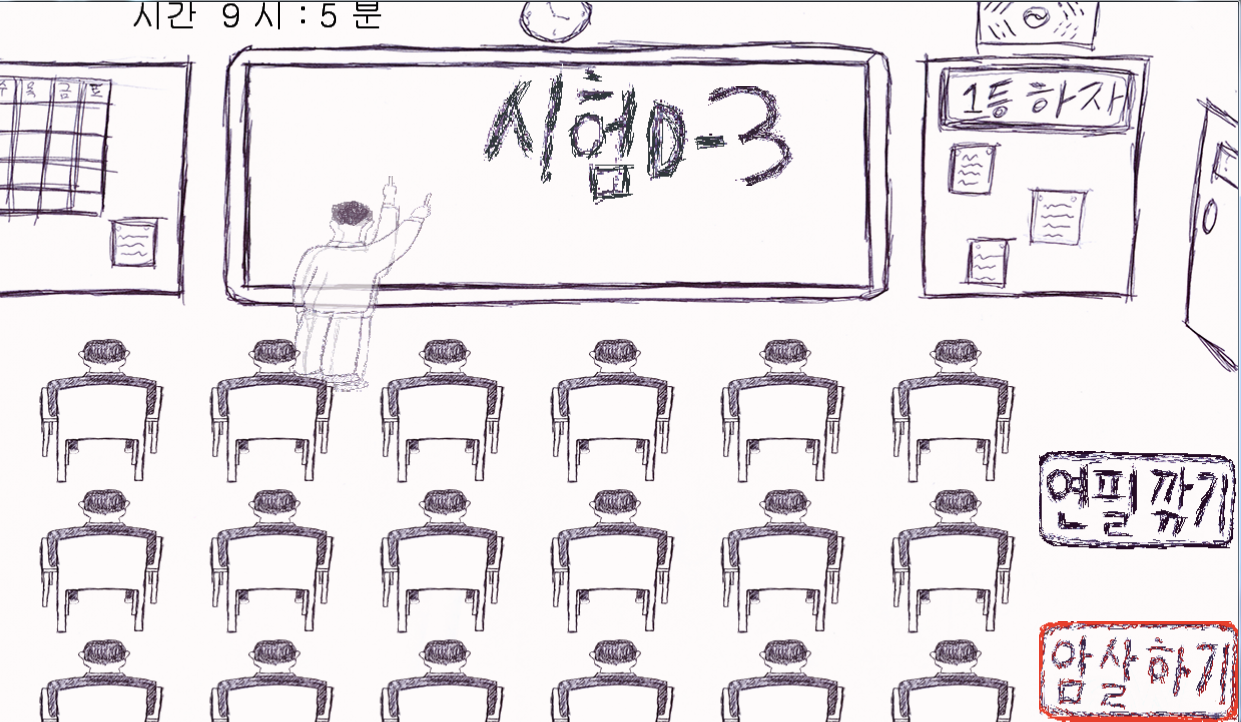 시간 9시 : 5 분
수 목 금 토
시험D-3
1등 하자
연필 깎기
암살하기